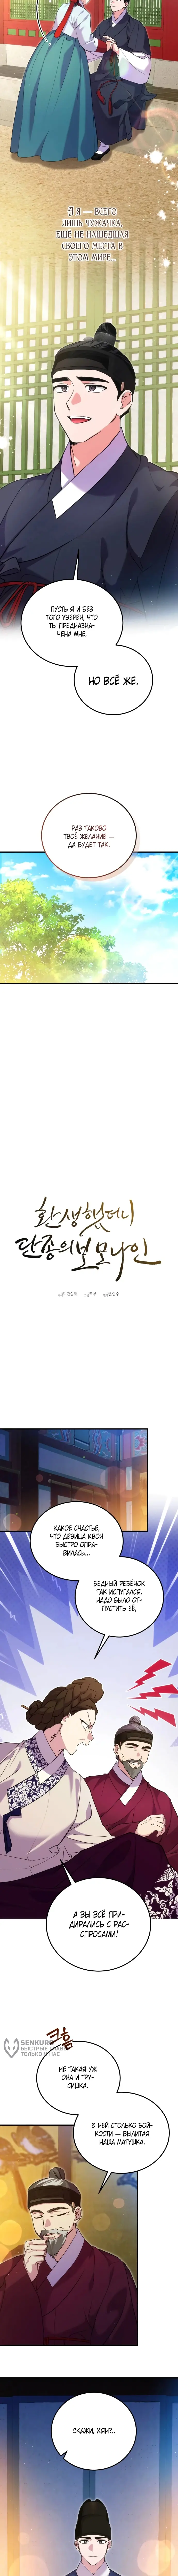 А я — всего
лишь чужачка,
ещё не нашедшая
своего места в
этом мире.
ПУСТЬ Я И БЕЗ
ТОГО УВЕРЕН, ЧТО
ТЫ ПРЕДНАЗНА-
ЧЕНА МНЕ,
НО ВСЁ ЖЕ.
РАЗ ТАКОВО
ТВОЁ ЖЕЛАНИЕ —
ДА БУДЕТ ТАК.
환생했더니
단종의 보모나인
КАКОЕ СЧАСТЬЕ,
ЧТО ДЕВИЦА КВОН
БЫСТРО ОПРА-
ВИЛАСЬ...
БЕДНЫЙ РЕБЁНОК
ТАК ИСПУГАЛСЯ,
НАДО БЫЛО ОТ-
ПУСТИТЬ ЕЁ,
А ВЫ ВСЁ ПРИ-
ДИРАЛИСЬ С РАС-
СПРОСАМИ!
크흠
SENKURO
БЫСТРЫЕ ГЛАВЫ
ТОЛЬКО У НАС
НЕ ТАКАЯ УЖ
ОНА И ТРУ-
СИШКА.
В НЕЙ СТОЛЬКО БОЙ-
КОСТИ — ВЫЛИТАЯ
НАША МАТУШКА.
СКАЖИ, ХЯН?..